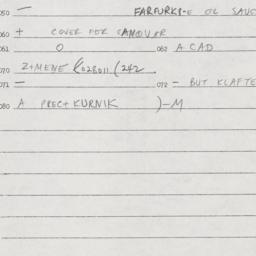 050 — FARFURKI-E OL SAUC
060 + COVER FOR SAMOVAR
061 O 062 A CAD
070 Z+MENE (028011 (242
071 — 072 — BUT KLAFTE
080 A PREC+ KURNIK )-M